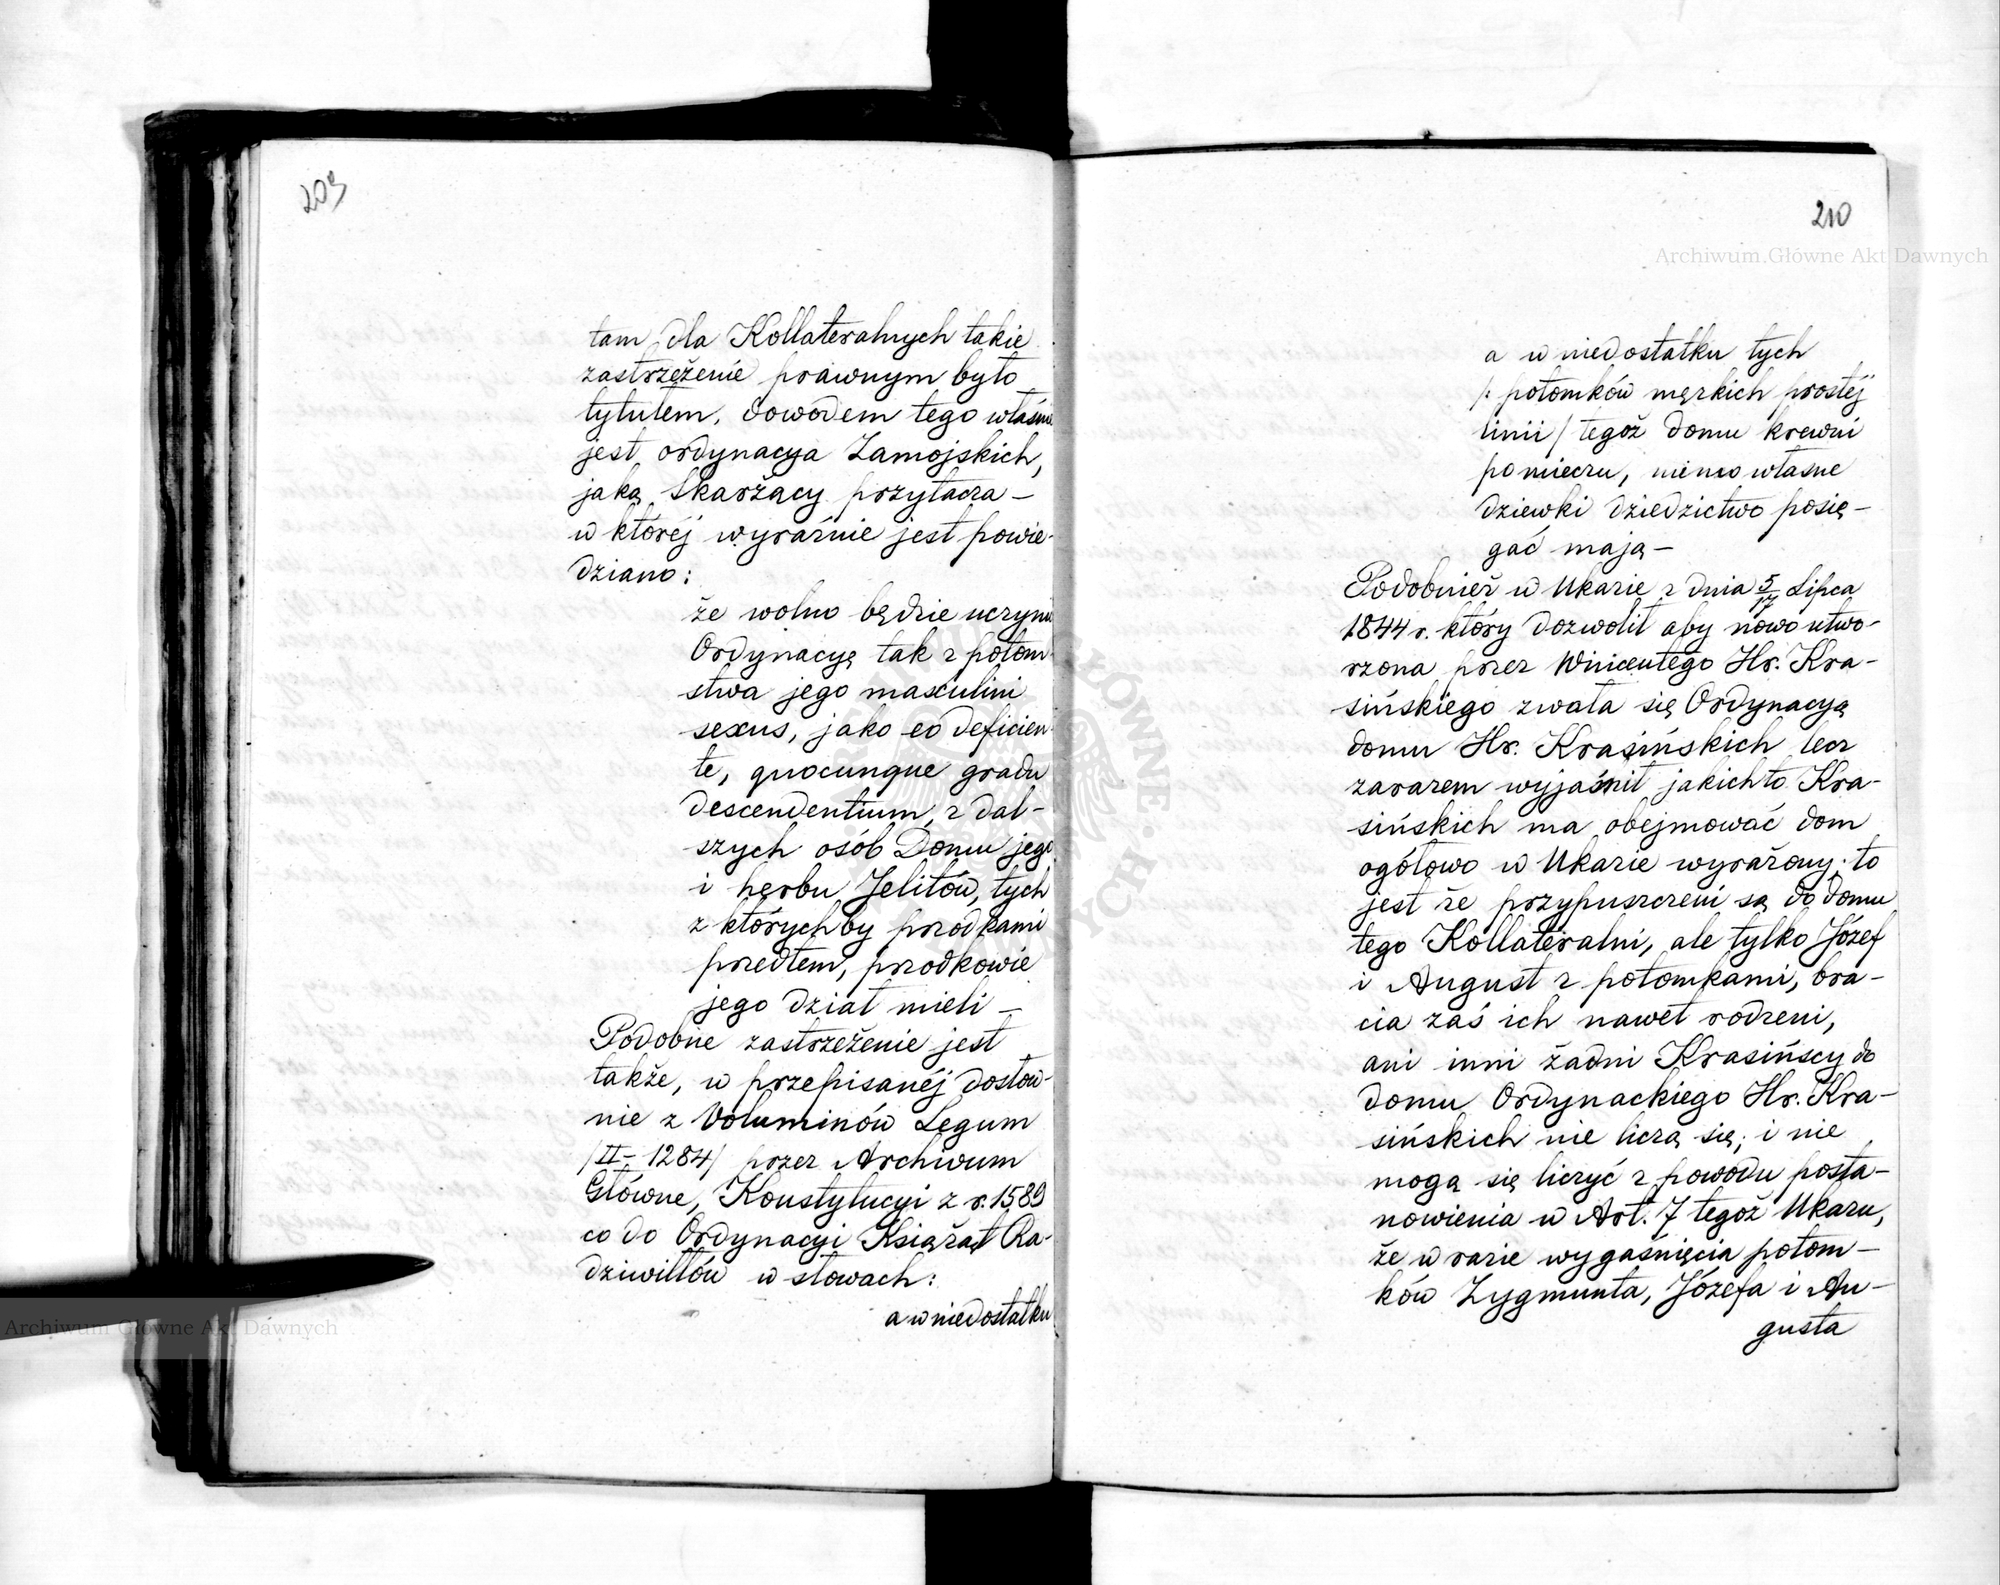 203
tam dla Kollateralnych takie
zastrzeżenie prawnym było
tytułem, dowodem tego właśnie
jest ordynacya Zamojskich,
jaką Skarżący przytacza —
w któréj wyraźnie jest powie-
dziano:
że wolno będzie uczynić
Ordynacyę tak z potom-
stwa jego masculini
sexus, jako eo deficien-
te, quocunque gradu
descendentium, z dal-
szych osób Domu jego
i herbu Jelitów, tych
z którychby przodkami
przedtem, przodkowie
jego dział mieli —
Podobne zastrzeżenie jest
także, w przepisanéj dosłow-
nie z Voluminów Legum
/II – 1284/ przez Archiwum
Główne, Konstytucyi z r. 1589
co do Ordynacyi Książąt Ra-
dziwiłłów w słowach:
a w niedostatku
210
a w niedostatku tych
/: potomków męzkich prostéj
linii / tegoż domu krewni
po mieczu, nie zaś własne
dziewki dziedzictwo posię-
gać mają —
Podobnież w Ukazie z dnia 5/17 Lipca
1844 r. który dozwolił aby nowo utwo-
rzona przez Winicentego Hr. Kra-
sińskiego zwała się Ordynacyą
domu Hr. Krasińskich lecz
zarazem wyjaśnił jakichto Kra-
sińskich ma obejmować dom
ogółowo w Ukazie wyrażony; to
jest że przypuszczeni są do domu
tego Kollateralni, ale tylko Józef
i August z potomkami, bra-
cia zaś ich nawet rodzeni,
ani inni żadni Krasińscy do
domu Ordynackiego Hr. Kra-
sińskich nie liczą się; i nie
mogą się liczyć z powodu posta-
nowienia w Art. 7 tegoż Ukazu,
że w razie wygaśnięcia potom-
ków Zygmunta, Józefa i Au-
gusta
Archiwum Główne Akt Dawnych
Archiwum Główne Akt Dawnych